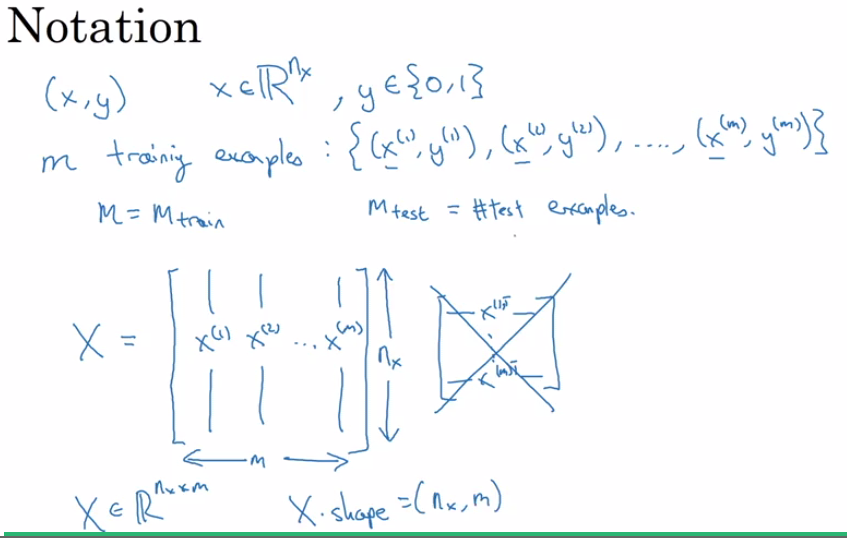 Notation
(x,y) x∈ℝ^{n_x}, y∈{0,1}
m training examples: {(x^{(1)}, y^{(1)}), (x^{(2)}, y^{(2)}), ...., (x^{(m)}, y^{(m)})}
M = M_{train} M_{test} = #test examples.
X = [x^{(1)} x^{(2)} ... x^{(m)}] n_x
x^{(1)T}
x^{(m)T}
m
X ∈ ℝ^{n_x × m} X.shape = (n_x, m)